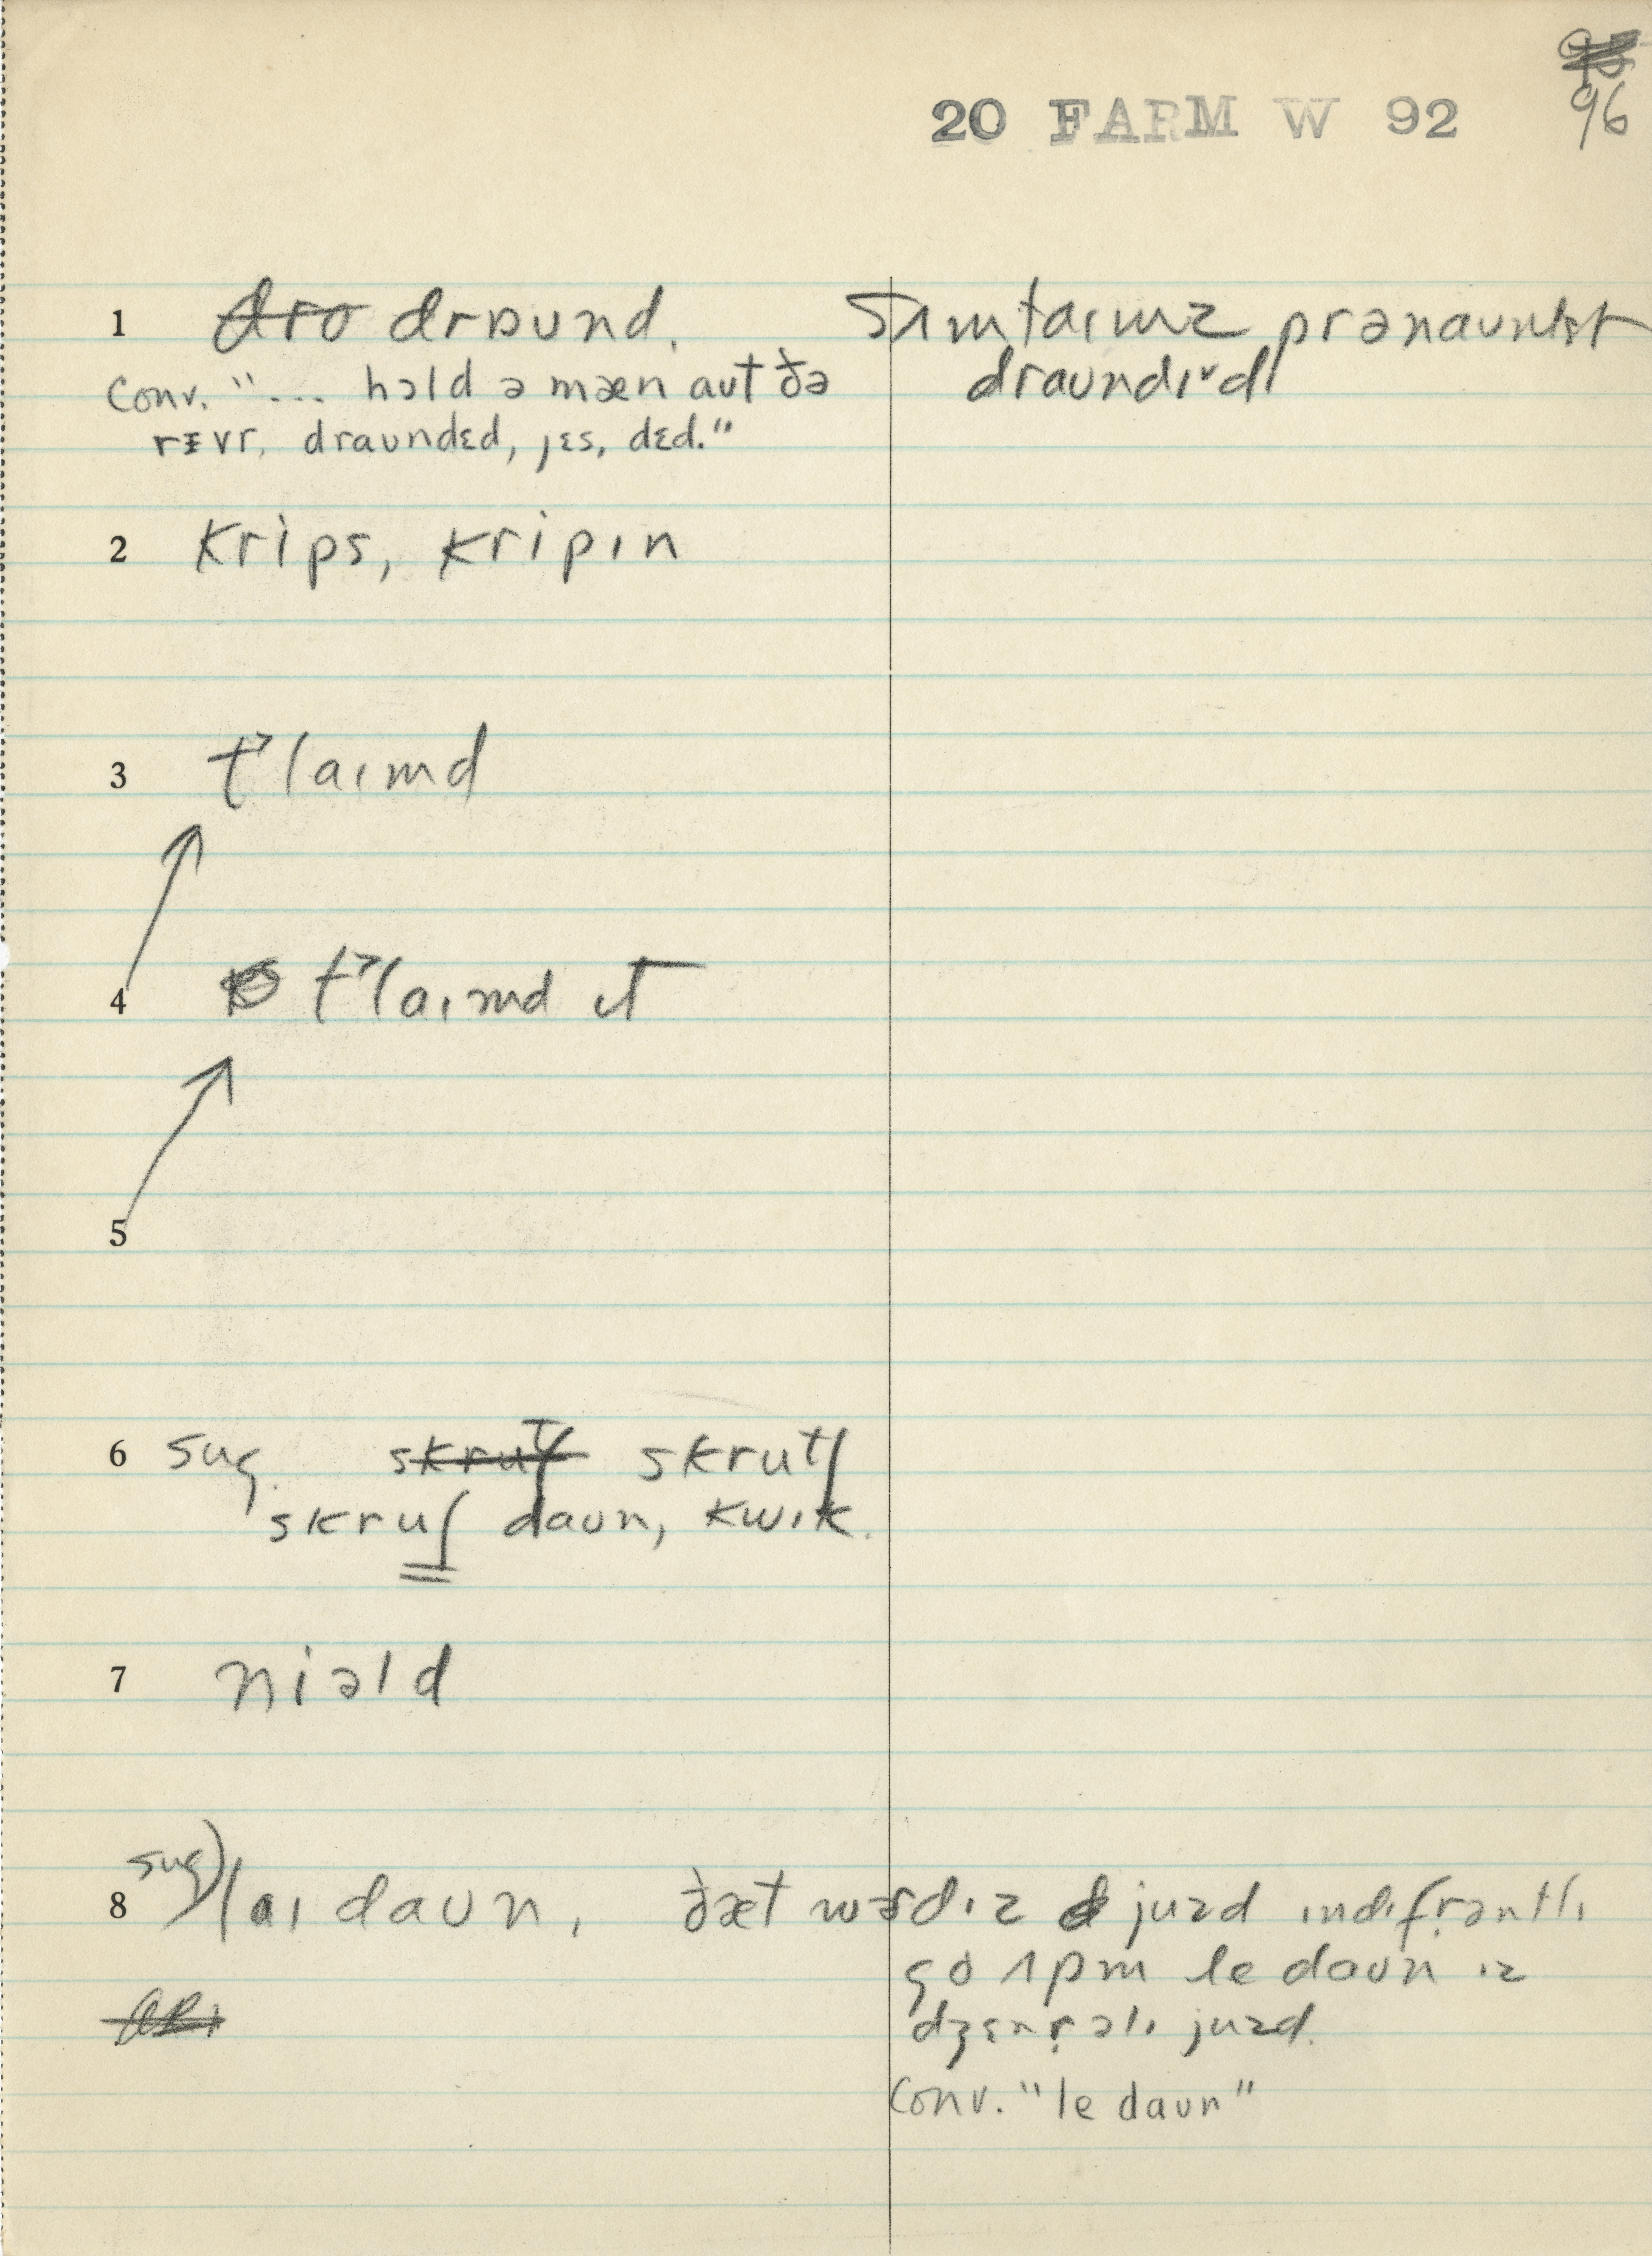 96
20 FARM W 92
1 drɒund. sʌmtaɪmz
draundɪᵛd
Conv. "... hɔld ə mæn aut ðə
rɪvr, draundɛd, jɛs, dɛd."
2 krips, kripɪn
3 t˃laɪmd
4 t˃laɪmd ɪt
5
6 sug. skrutʃ skrutʃ
skruʃ daun, kwɪk.
7 niəld
8 sug) laɪ daun, ðæt wɚd ɪz juzd ɪndɪfrəntlɪ
go ʌpm le daun ɪz
dʒɛnrəlɪ juzd.
Conv. "le daun"